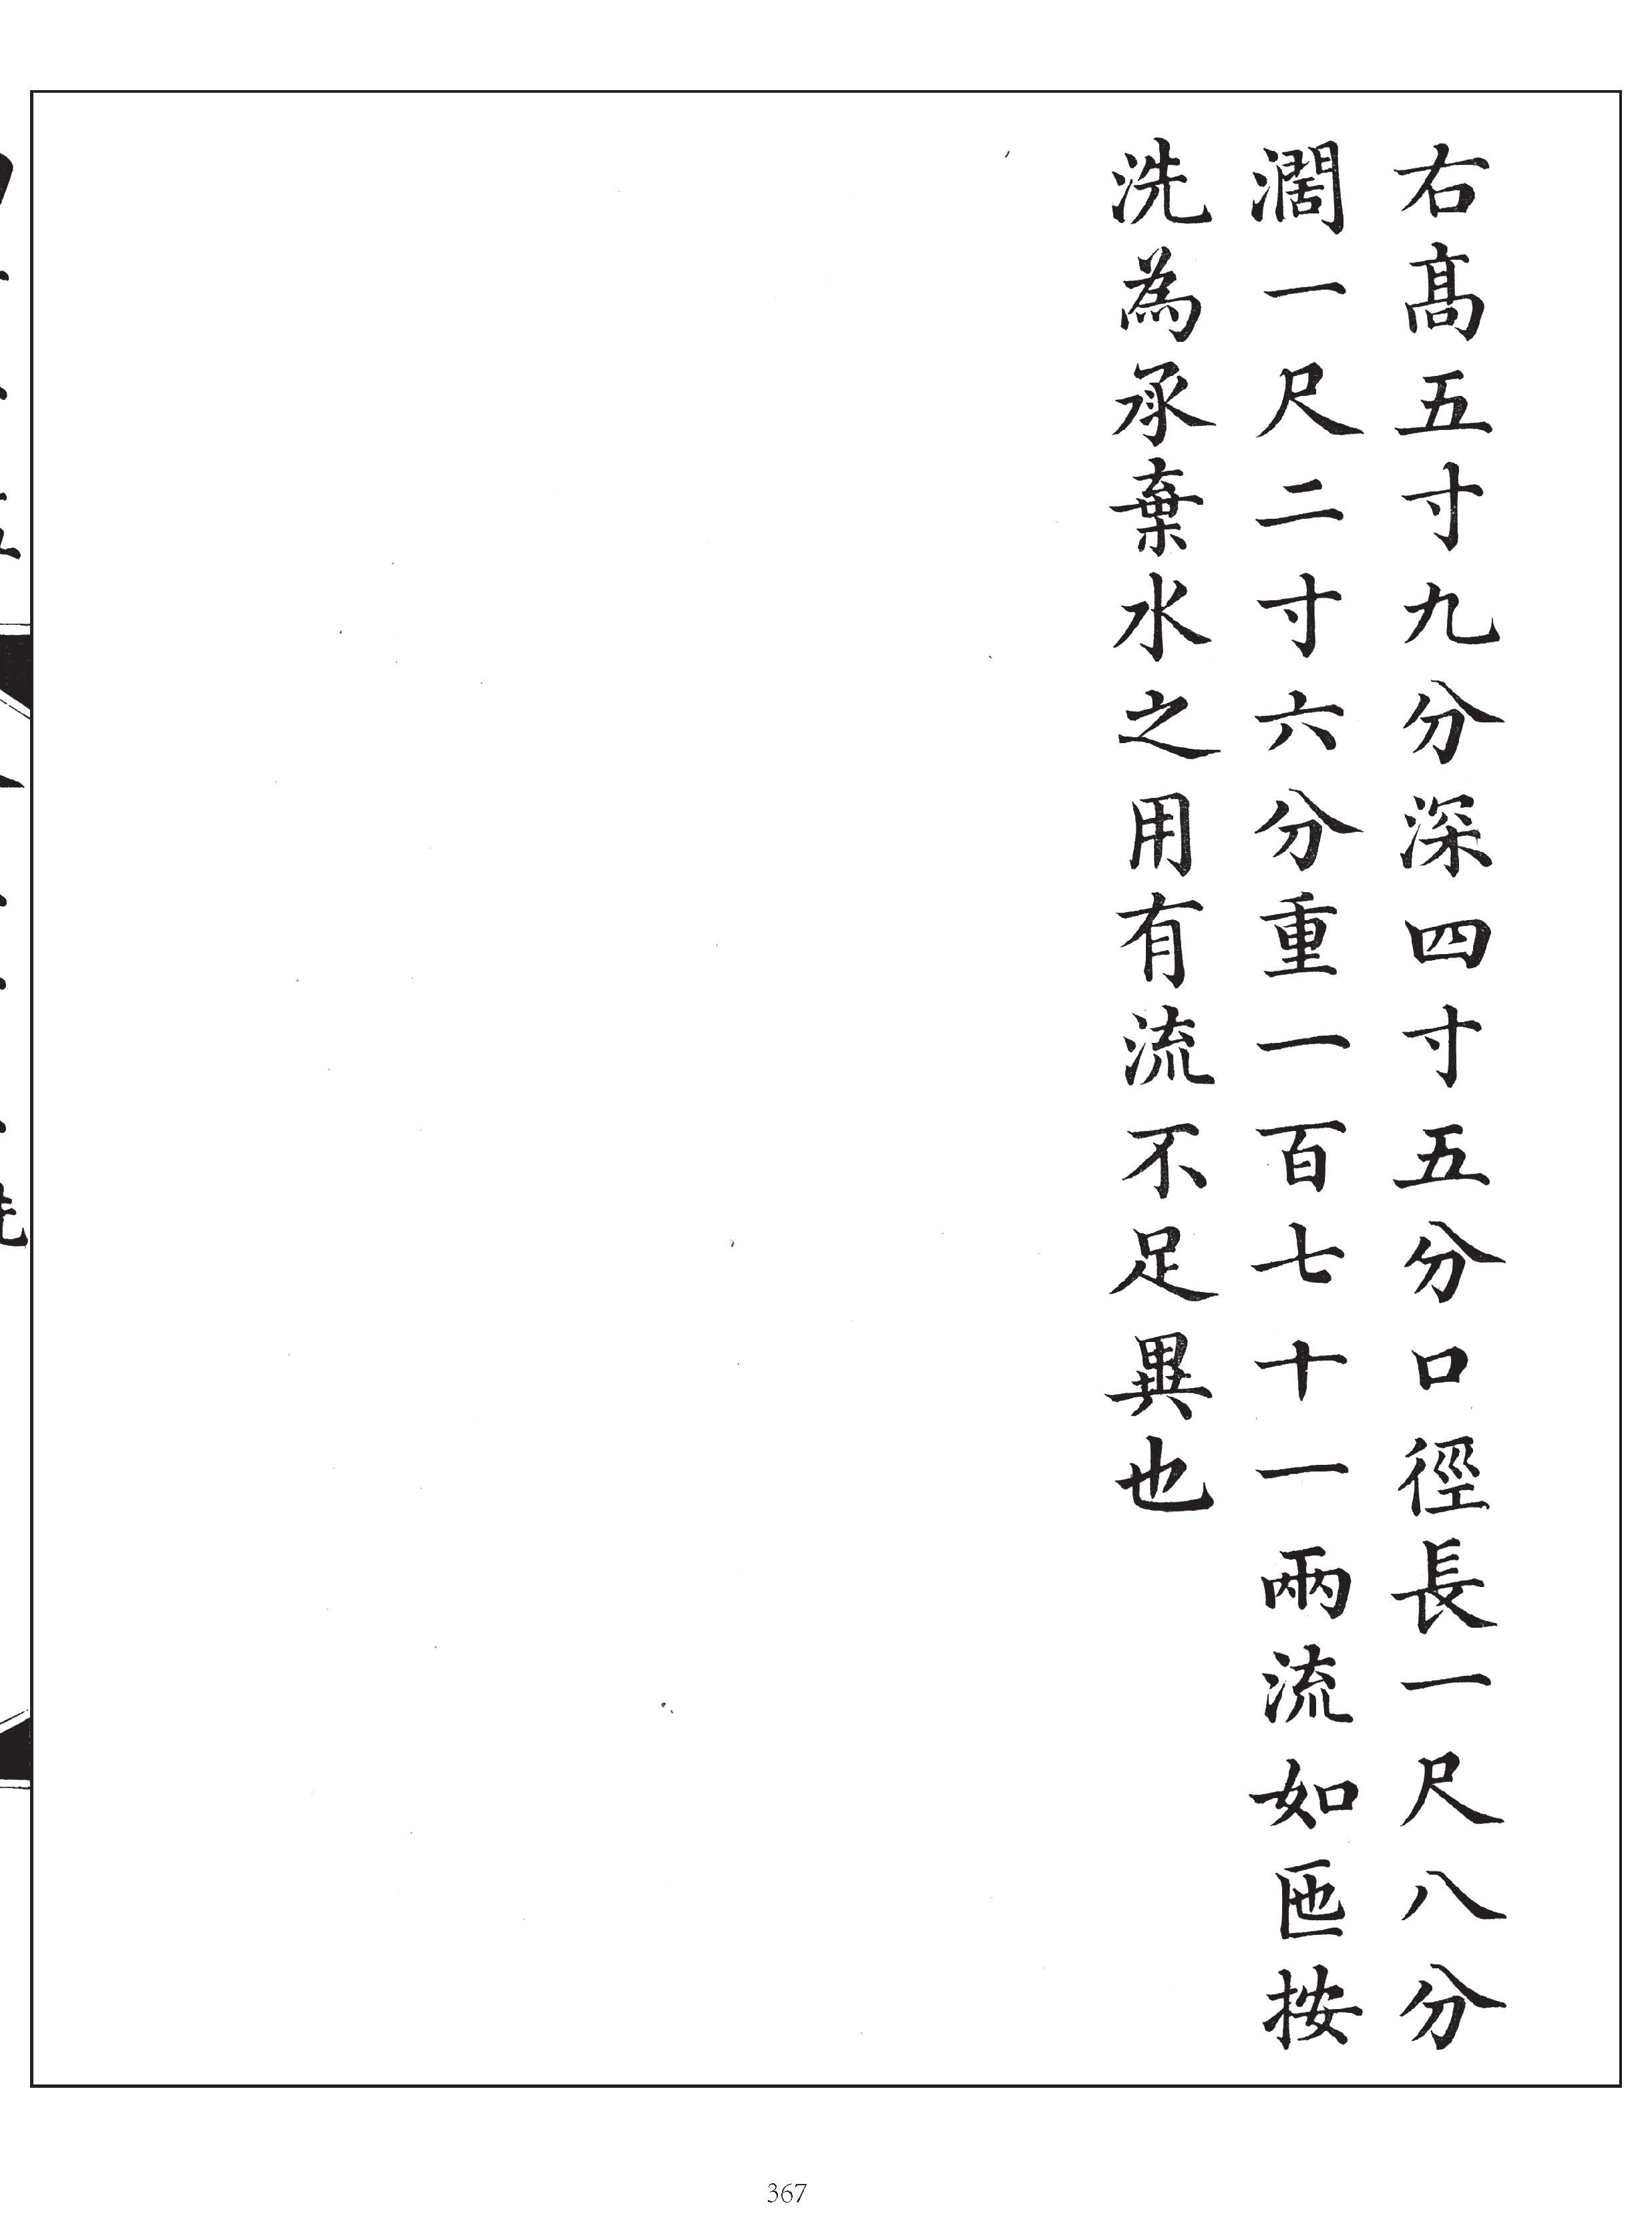 右髙五寸九分深四寸五分口徑長一尺八分
濶一尺二寸六分重一百七十一兩流如匜按
洗為承棄水之用有流不足異也
367